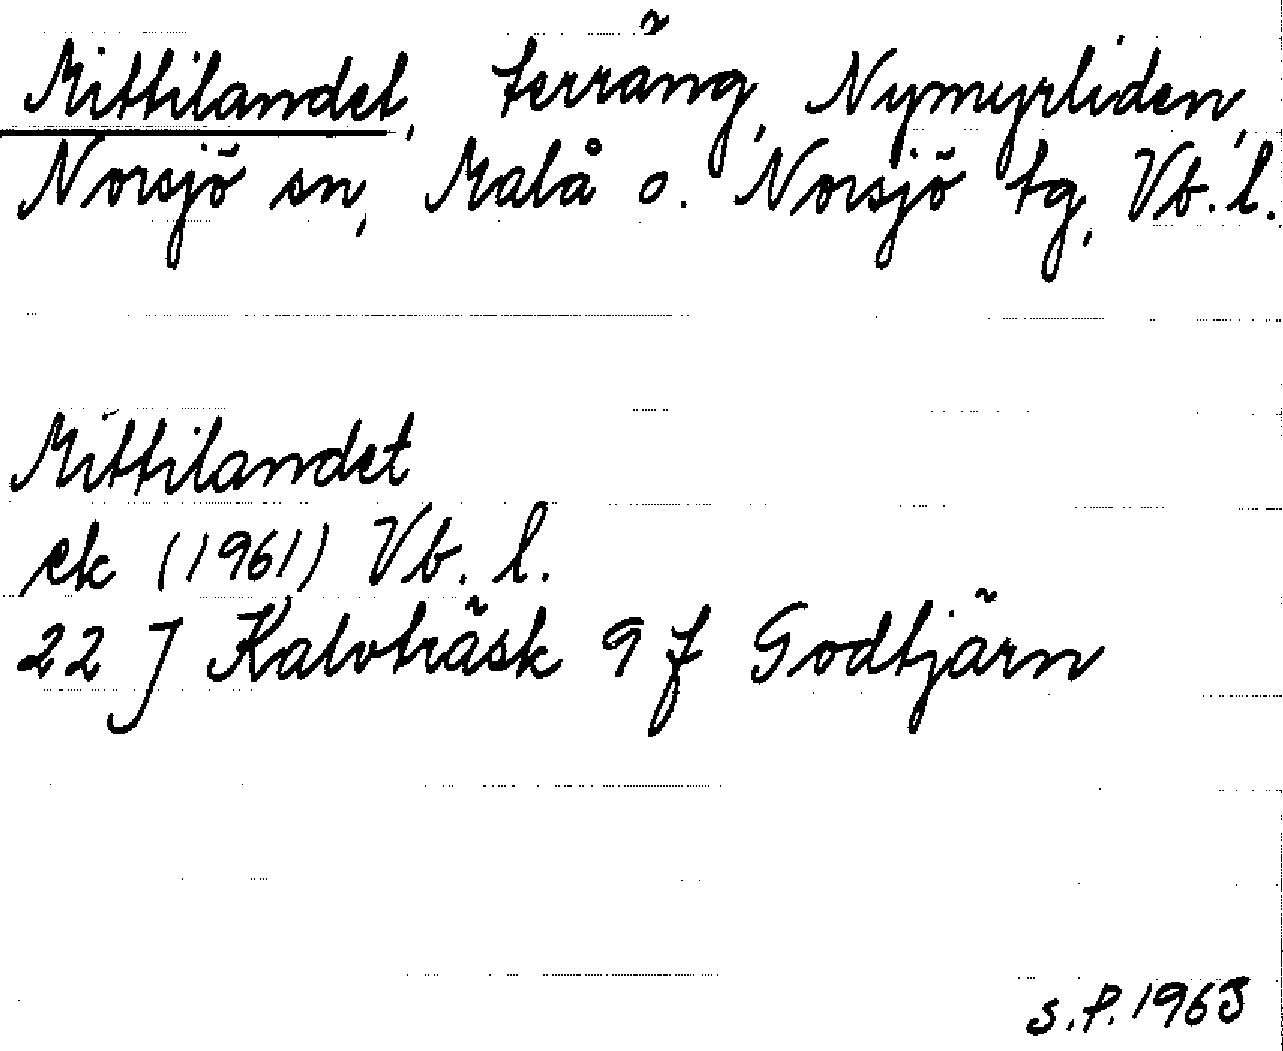 Mittilandet, terräng, Nymyrliden,
Norsjö sn, Malå o. Norsjö tg, Vb. l.
Mittilandet
ek (1961) Vb. l.
22 J Kalvträsk 9 f Godtjärn
S.P. 1963